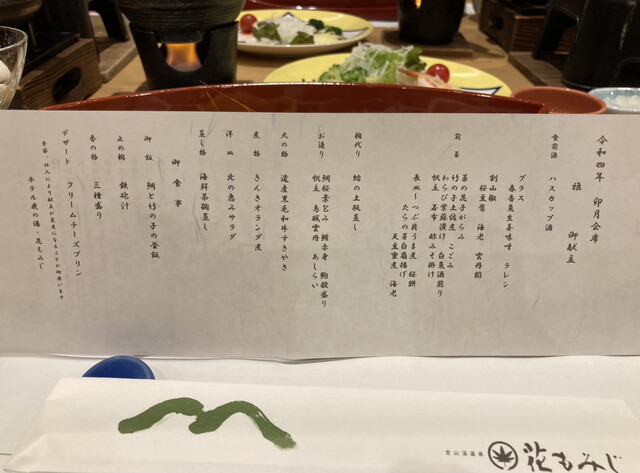 令和四年 卯月会席
雅 御献立
食前酒 ハスカップ酒
前菜 グラス 春香魚生姜味噌 ラレシ
割山椒 桜豆腐 海老 雲丹餡
菜の花子がらみ
竹の子土佐煮 こごみ
わらび紫蘇漬け 白魚酒煎り
帆立 若布 酢みそ掛け
長皿 つぶ貝うま煮 桜餅
たらの芽白扇揚げ
天豆蜜煮 海老
椀代り 蛤の土瓶蒸し
お造り 鯛桜葉包み 鮪赤身 鮑殻盛り
帆立 鳥城雲丹 あしらい
火の物 道産黒毛和牛すきやき
煮物 きんきオランダ煮
洋皿 北の恵みサラダ
蒸し物 海鮮茶碗蒸し
御食事
御飯 鯛と竹の子の釜飯
止め椀 鉄砲汁
香の物 三種盛り
デザート クリームチーズプリン
季節・仕入により献立が変更になることが御座います
ホテル鹿の湯・花もみじ
定山渓温泉
花もみじ